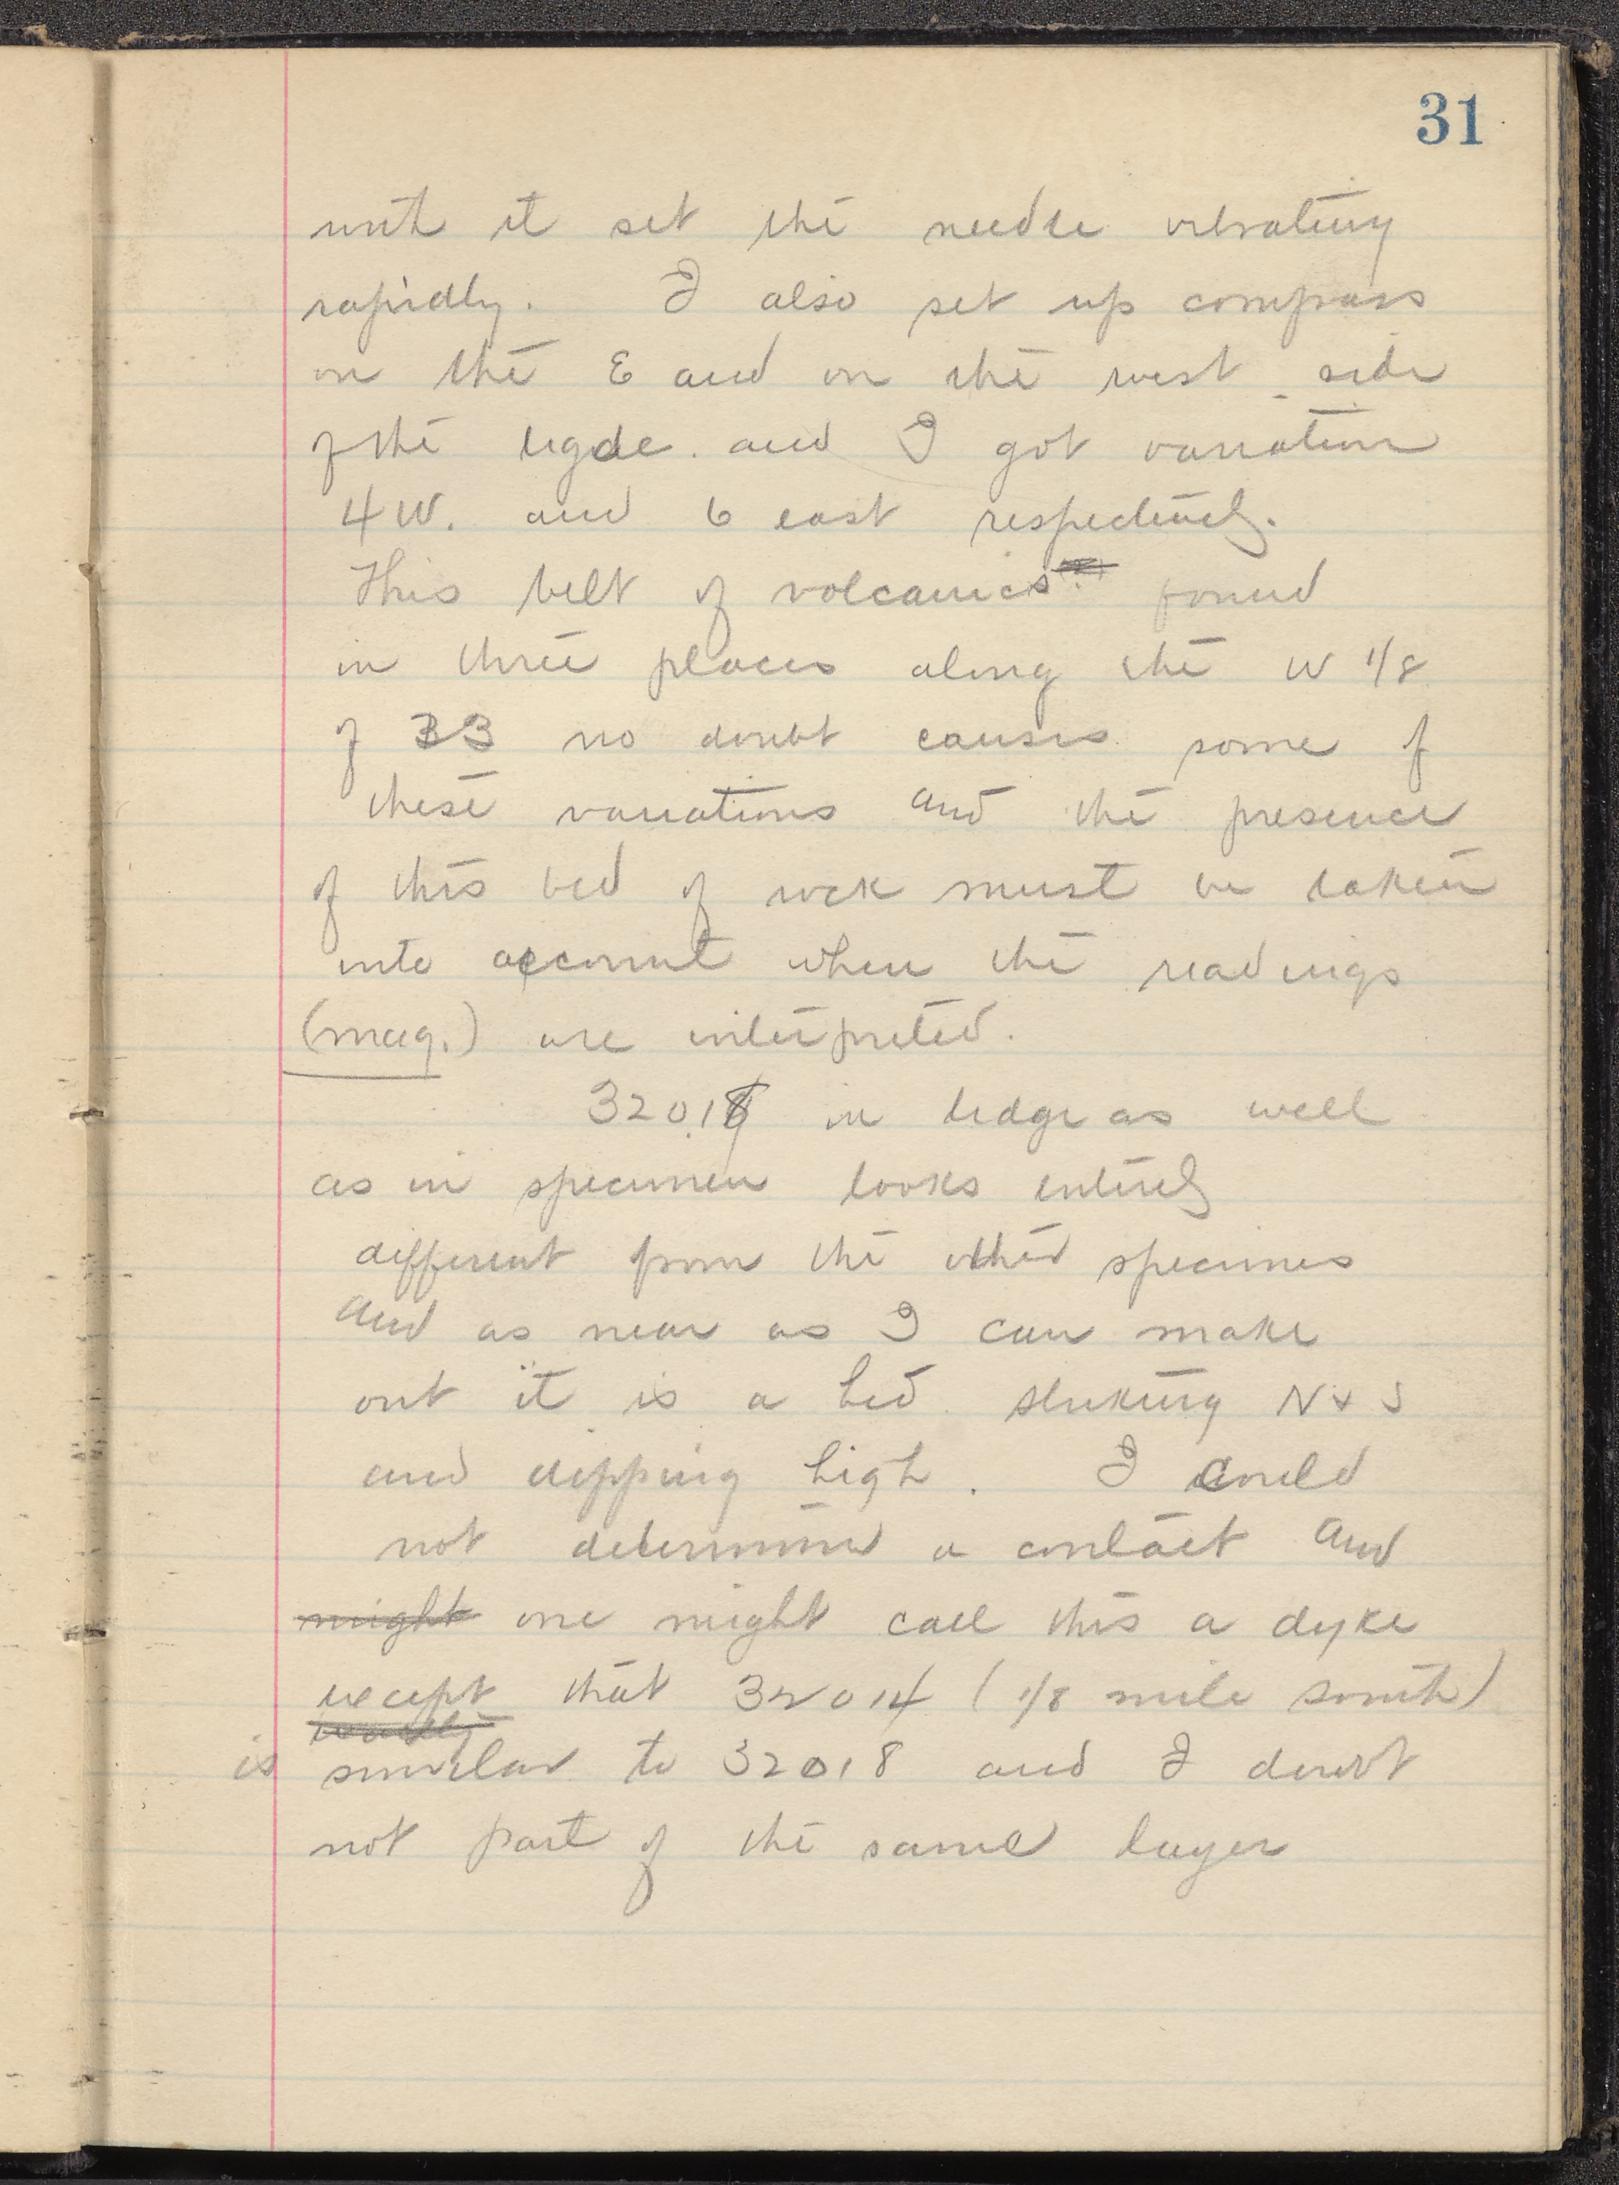 31
with it set the needle vibrating
rapidly. I also set up compass
on the E and on the west side
of the ligde. and I got variation
4 W. and 6 east respectively.
This belt of volcanics found
in three places along the W 1/8
of 33 no doubt causes some of
these variations and the presence
of this bed of rock must be taken
into account when the readings
(mag.) are interpreted.
32018 in ledge as well
as in specimen looks entirely
different from the other specimes
and as near as I can make
out it is a bed striking N & S
and dipping high. I could
not determine a contact and
might one might call this a dyke
except that 32014 (1/8 mile south)
is similar to 32018 and I doubt
not part of the same layer